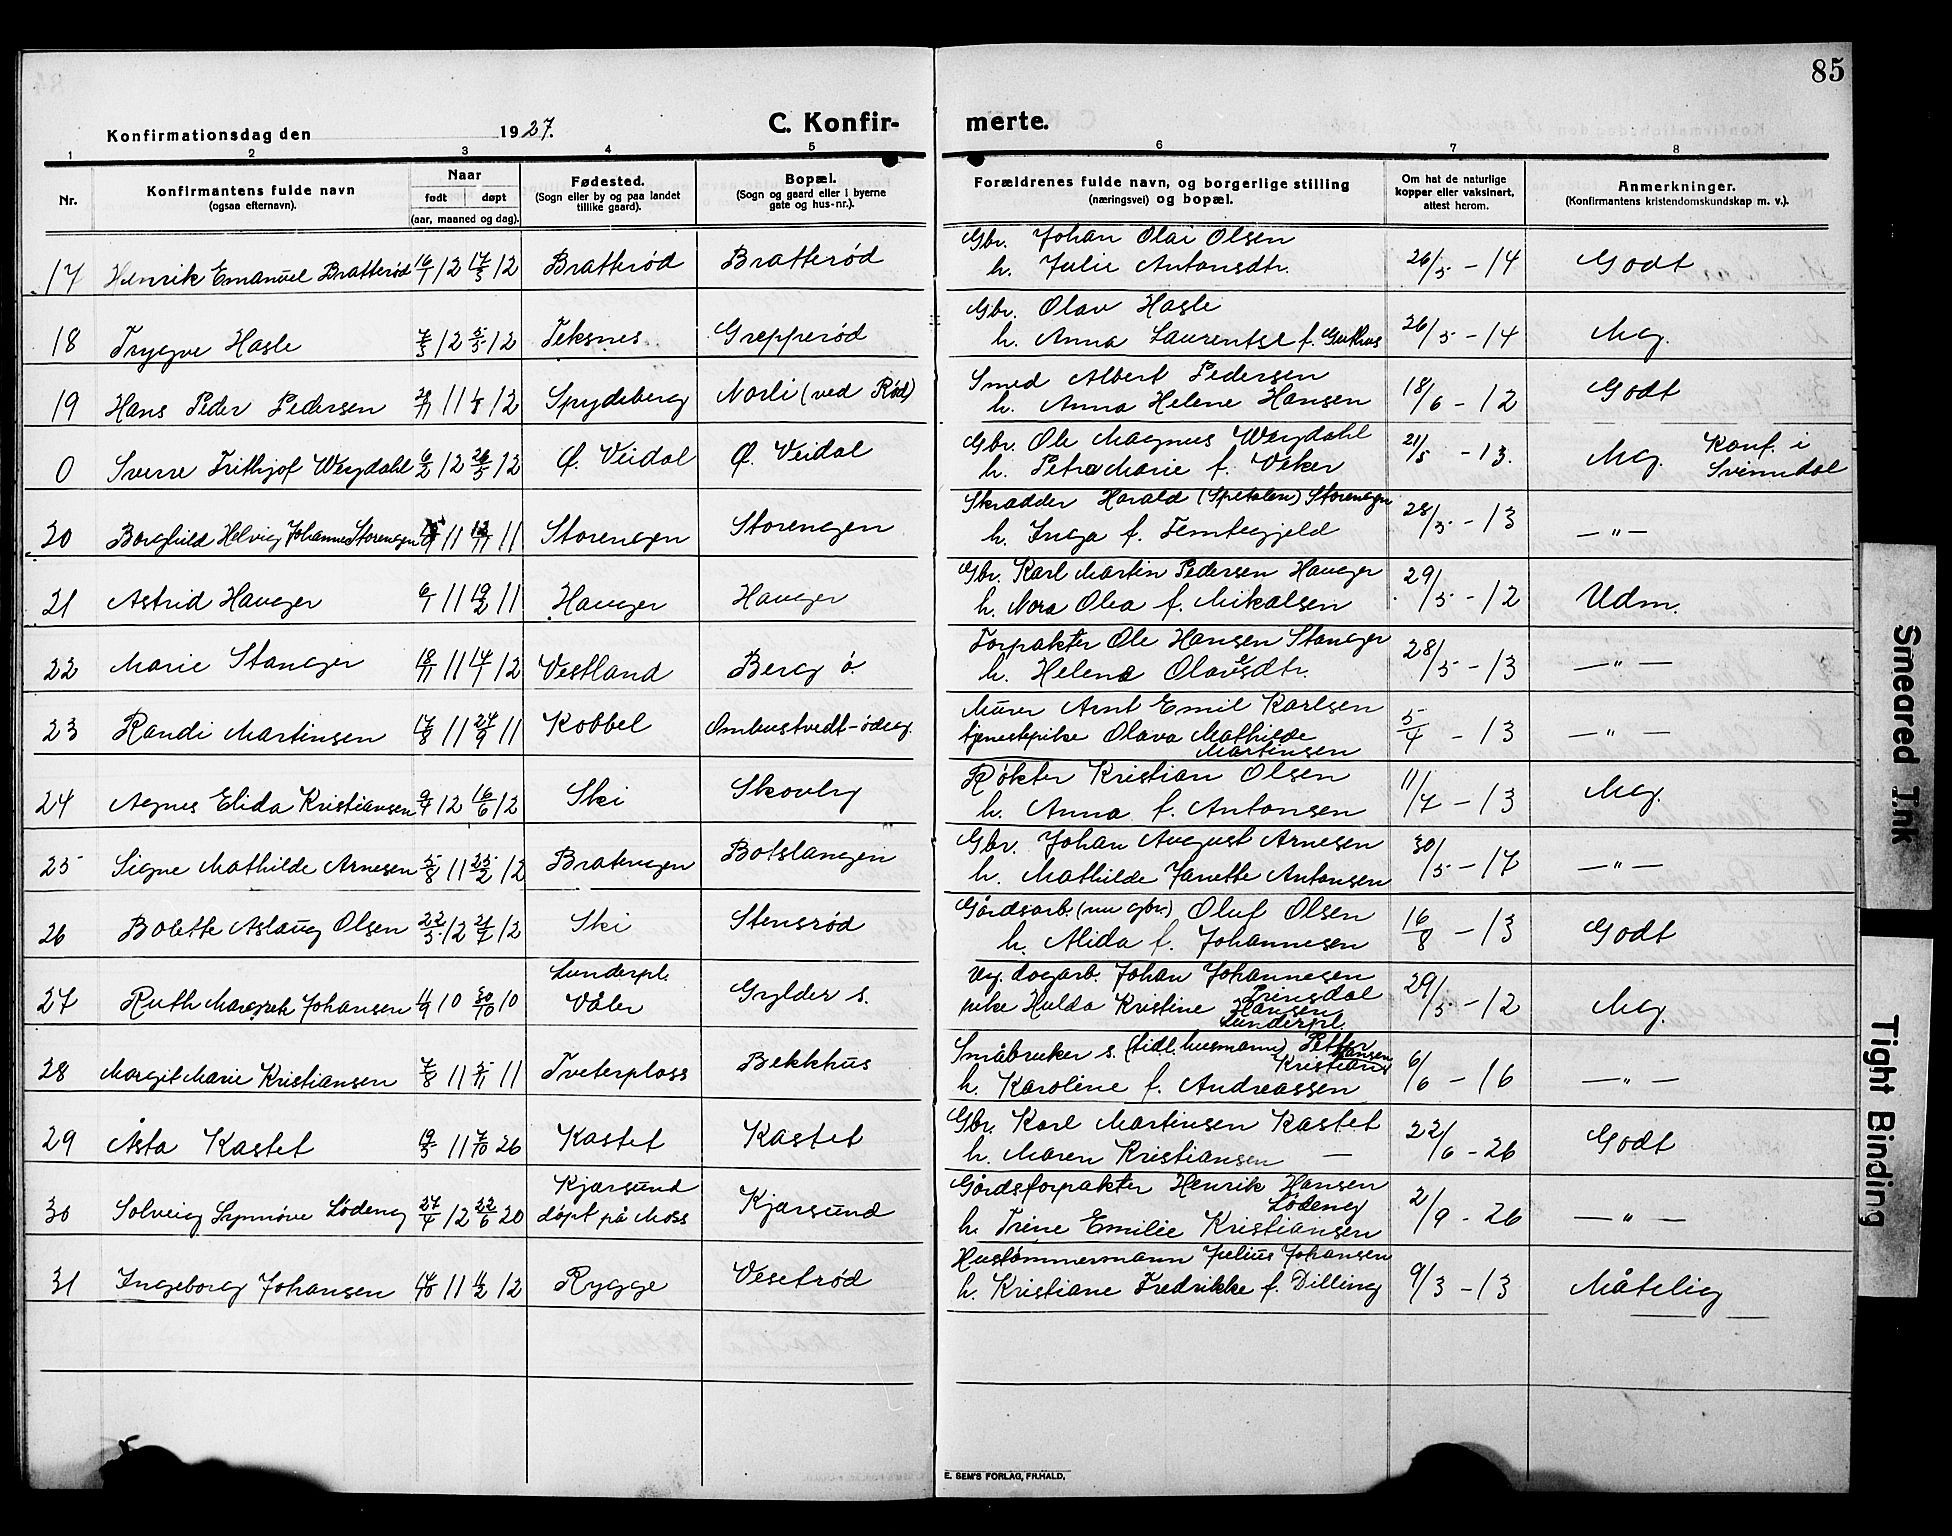 85
Konfirmationsdag den 1927. C. Konfir- merte.
1 2 3 4 5 6 7 8
Nr. Konfirmantens fulde navn (ogsaa efternavn). Naar født døpt (aar, maaned og dag). Fødested. (Sogn eller by og paa landet tillike gaard). Bopæl. (Sogn og gaard eller i byerne gate og hus-nr.). Forældrenes fulde navn, og borgerlige stilling (næringsvei) og bopæl. Om hat de naturlige kopper eller vaksinert, attest herom. Anmerkninger. (Konfirmantens kristendomskundskap m. v.).
Gbr. Johan Olai Olsen
17 Henrik Emanuel Bratterød 16/1 12 17/3 12 Bratterød Bratterød h. Julie Antonsdtr. 26/5 - 14 Godt
Gbr. Olav Hasle
18 Trygve Hasle 7/3 12 5/5 12 Teksnes Grepperød h. Anna Laurentse f. 26/5 - 14 Mg.
Smed Albert Pedersen
19 Hans Peder Pedersen 11 12 Spydeberg Norli (ved Rød) h. Anna Helene Hansen 18/6 - 12 Godt
Gbr. Ole Magnus Weydahl
0 Sverre Frithjof Weydahl 6/2 12 26/5 12 Ø. Veidal Ø. Veidal h. Petra Marie f. Veker 21/5 - 13. Mg. Konf. i Svinndal
Skrædder Harald (Spetalen) Storengen
20 Borghild Helvig Johanne Storengen 11 11 Storengen Storengen h. Inga f. Femtegjeld 28/5 - 13 - " -
Gbr. Karl Martin Pedersen Hauger
21 Astrid Hauger 6/1 11 19/2 11 Hauger Hauger h. Nora Olea f. Mikalsen 29/5 - 12 Udm.
Forpakter Ole Hansen Stanger
22 Marie Stanger 19/11 11 14/4 12 Vestland Berg ø. h. Helene Olavesdtr. 28/5 - 13 - " -
Murer Arnt Emil Karlsen
23 Randi Martinsen 17/8 11 24/9 11 Kobbel Ombustvedt-ødeg. tjenestepike Olava Mathilde Martinsen 5/4 - 13 - " -
Røkter Kristian Olsen
24 Agnes Elida Kristiansen 9/4 12 16/6 12 Ski Skovly h. Anna f. Antonsen 11/4 - 13 Mg.
Gbr. Johan August Arnesen
25 Signe Mathilde Arnesen 5/8 11 25/2 12 Bratengen Botslangen h. Mathilde Janette Antonsen 30/5 - 17 - " -
Gårdsarb. (nu gbr.) Oluf Olsen
26 Bolette Aslaug Olsen 22/5 12 21/7 12 Ski Stensrød h. Alida f. Johannesen 16/8 - 13 Godt
Ug. dagarb. Johan Johannesen Prinsdal
27 Ruth Margrete Johansen 11/9 10 30/10 10 Sunderpl. Våler Gylder s. pike Hulda Kristine Hansen Sunderpl. 29/5 - 12 Mg.
Småbruker s. (tidl. husmann) Petter Hansen Kristians
28 Margit Marie Kristiansen 7/8 11 5/11 11 Tveterplass Bekkhus h. Karoline f. Andreassen 6/6 - 16 - " -
Gbr. Karl Martinsen Kastet
29 Åsta Kastet 19/5 11 7/10 26 Kastet Kastet h. Maren Kristiansen — 22/6 - 26 Godt
Gårdsforpakter Henrik Hansen Lødeng
30 Solveig Synnøve Lødeng 27/4 12 22/6 20 Kjærsund døpt på Moss Kjærsund h. Trine Emilie Kristiansen 2/9 - 26 - " -
Hustømmermann Julius Johansen
31 Ingeborg Johansen 14/10 11 11/2 12 Rygge Vesetrød h. Kristiane Fredrikke f. Dilling 9/3 - 13 Måtelig
E. SEM'S FORLAG, FR.HALD,
Smeared Ink
Tight Binding